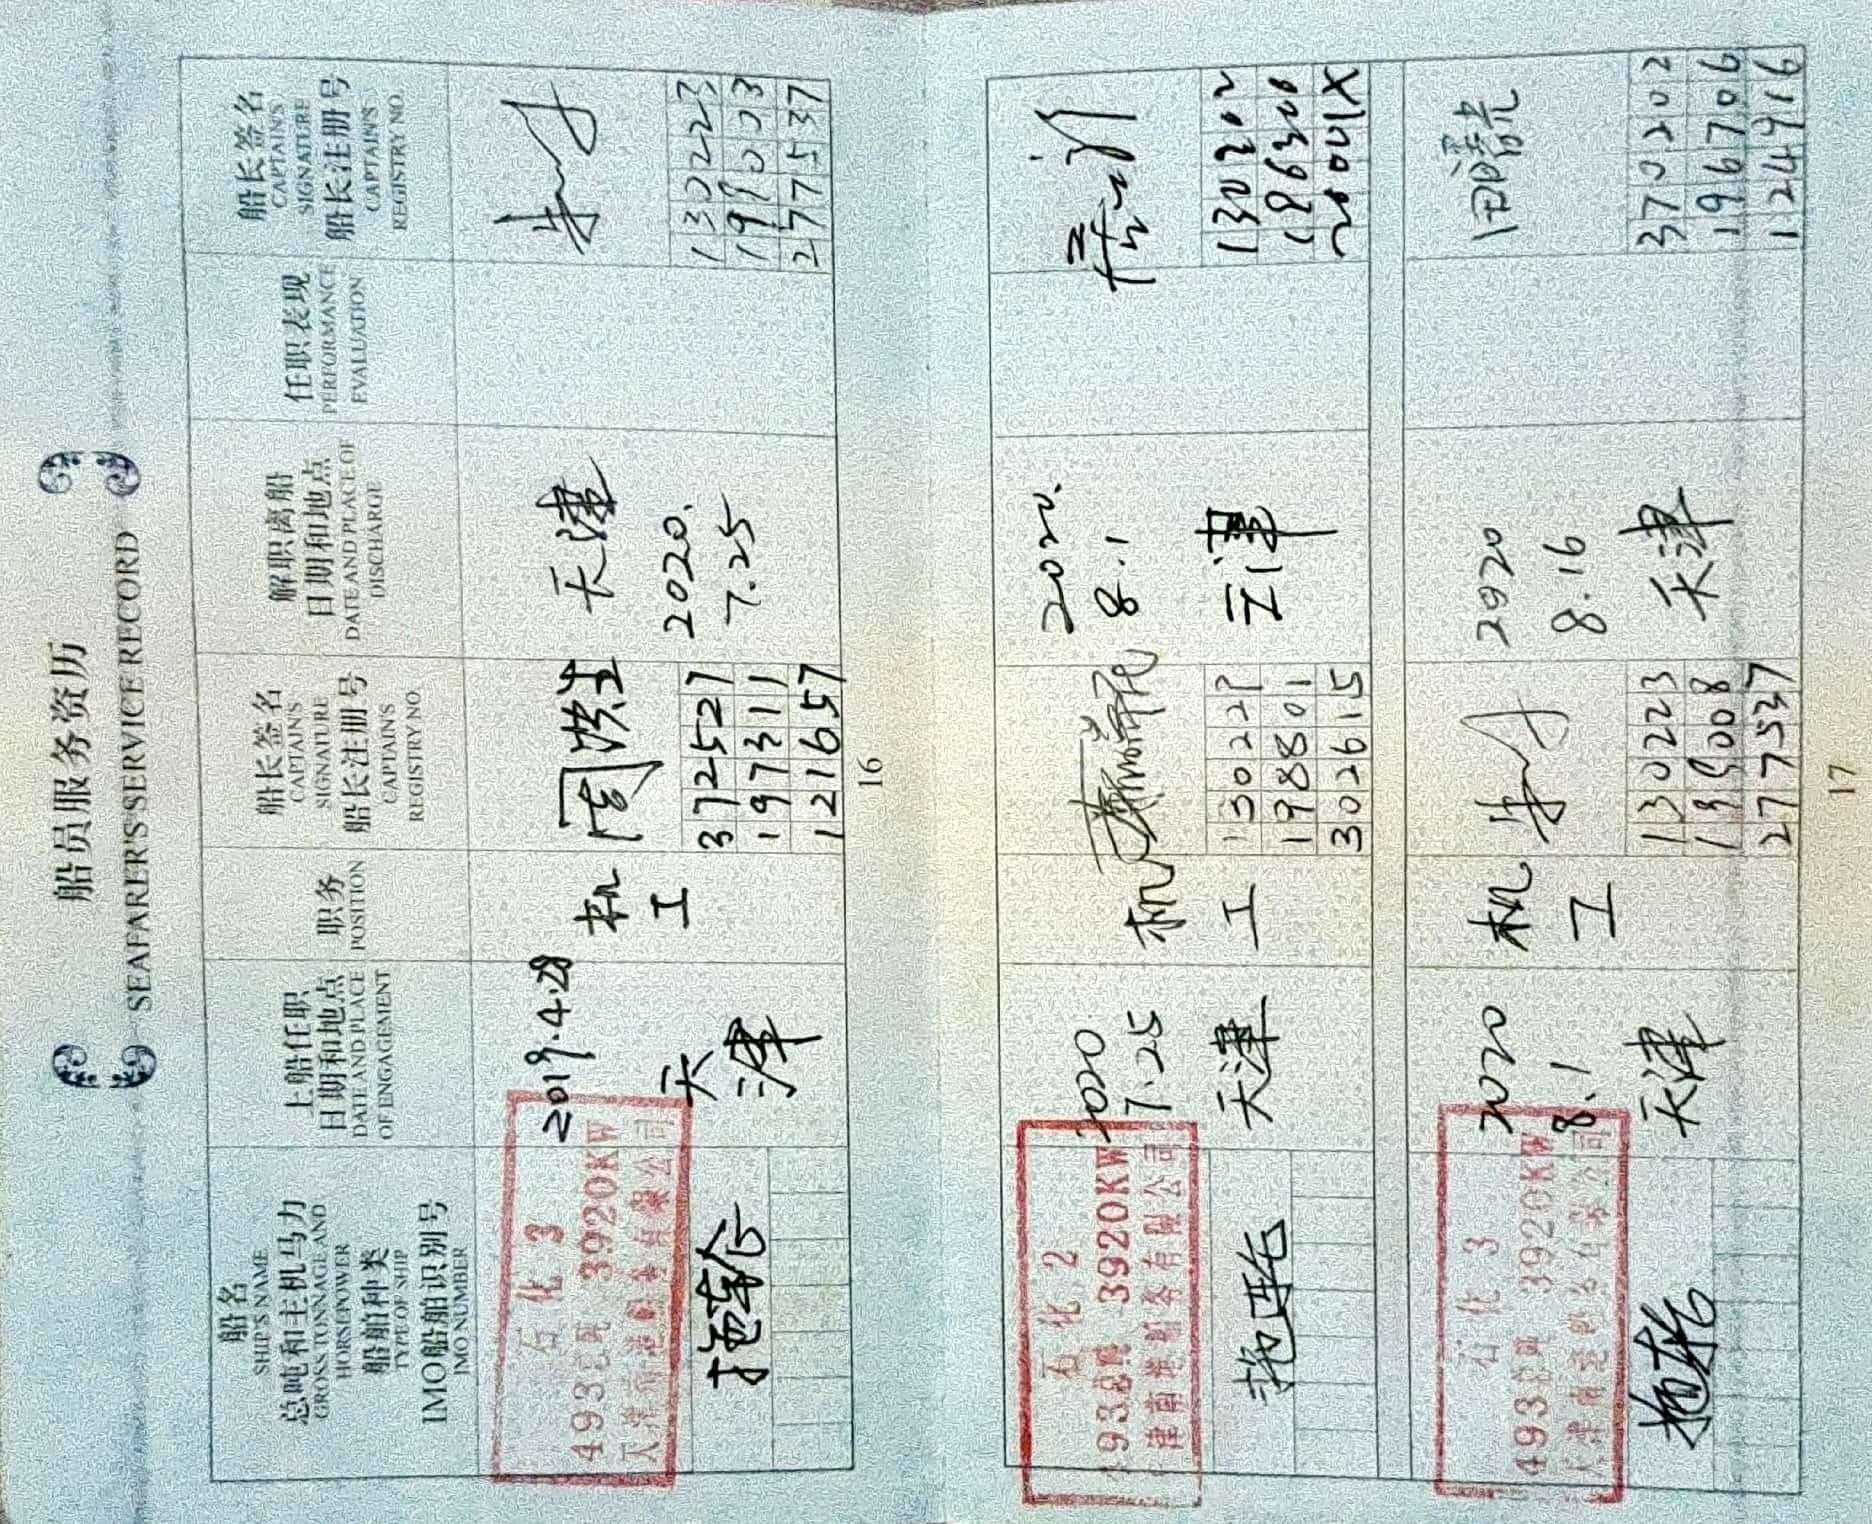 船员服务资历
SEAFARER'S SERVICE RECORD
船名
SHIP'S NAME
总吨和主机马力
GROSS TONNAGE AND
HORSEPOWER
船舶种类
TYPE OF SHIP
IMO船舶识别号
IMO NUMBER
上船任职
日期和地点
DATE AND PLACE
OF ENGAGEMENT
职务
POSITION
船长签名
CAPTAIN'S
SIGNATURE
船长注册号
CAPTAIN'S
REGISTRY NO
解职离船
日期和地点
DATE AND PLACE OF
DISCHARGE
任职表现
PERFORMANCE
EVALUATION
船长签名
CAPTAIN'S
SIGNATURE
船长注册号
CAPTAIN'S
REGISTRY NO.
石化3
493总吨 3920KW
有限公司
拖轮
2019.4.28
天
津
机
工
周洪生
372527
197311
121657
天津
2020.
7.25
130223
199003
277537
16
石化2
493总吨 3920KW
有限公司
2020
7.25
天津
机
工
130227
198801
302615
2020.
8.1
天津
130302
196300
2004X
石化3
493总吨 3920KW
有限公司
2020
8.1
天津
机
工
130223
199008
277537
2020
8.16
天津
370202
196706
124916
17